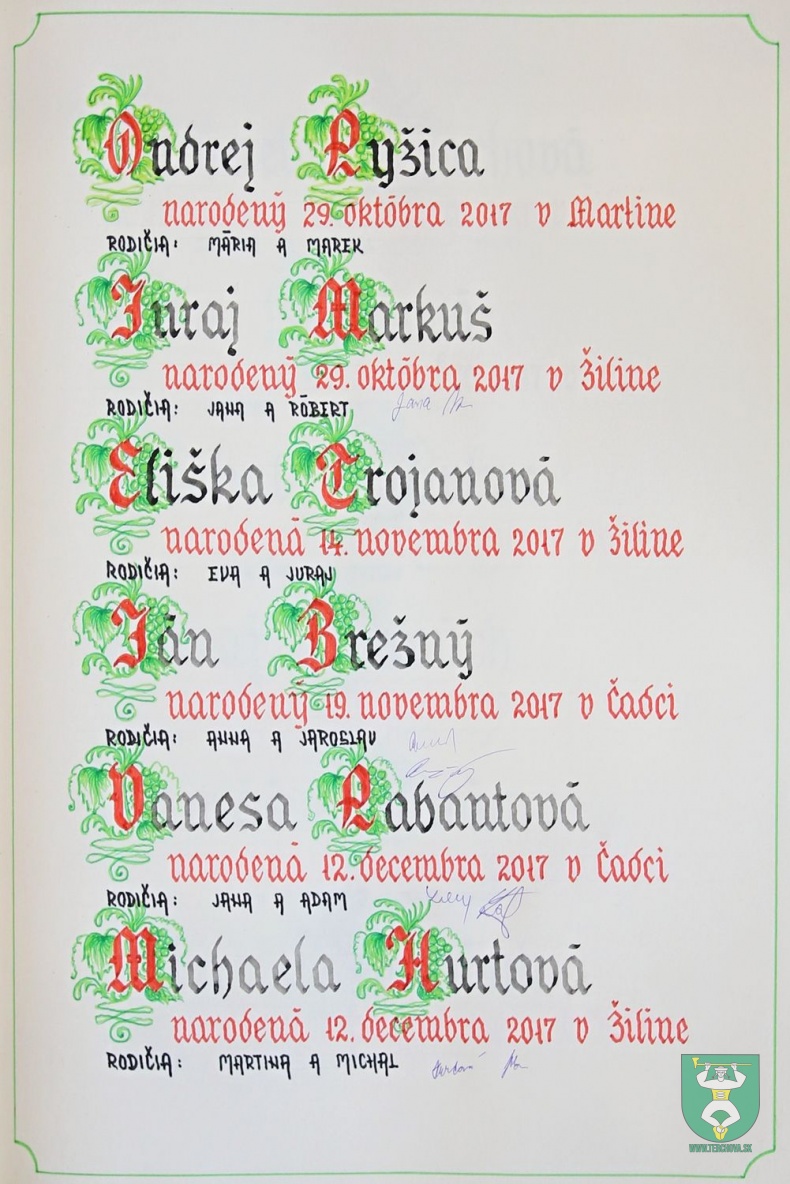 Ondrej Lyžica
narodený 29. októbra 2017 v Martine
RODIČIA: MÁRIA A MAREK
Juraj Markuš
narodený 29. októbra 2017 v Žiline
RODIČIA: JANA A RÓBERT Jana
Eliška Trojanová
narodená 14. novembra 2017 v Žiline
RODIČIA: EVA A JURAJ
Ján Brežný
narodený 19. novembra 2017 v Čadci
RODIČIA: ANNA A JAROSLAV
Vanesa Labantová
narodená 12. decembra 2017 v Čadci
RODIČIA: JANA A ADAM
Michaela Hurtová
narodená 12. decembra 2017 v Žiline
RODIČIA: MARTINA A MICHAL
WWW.TERCHOVA.SK